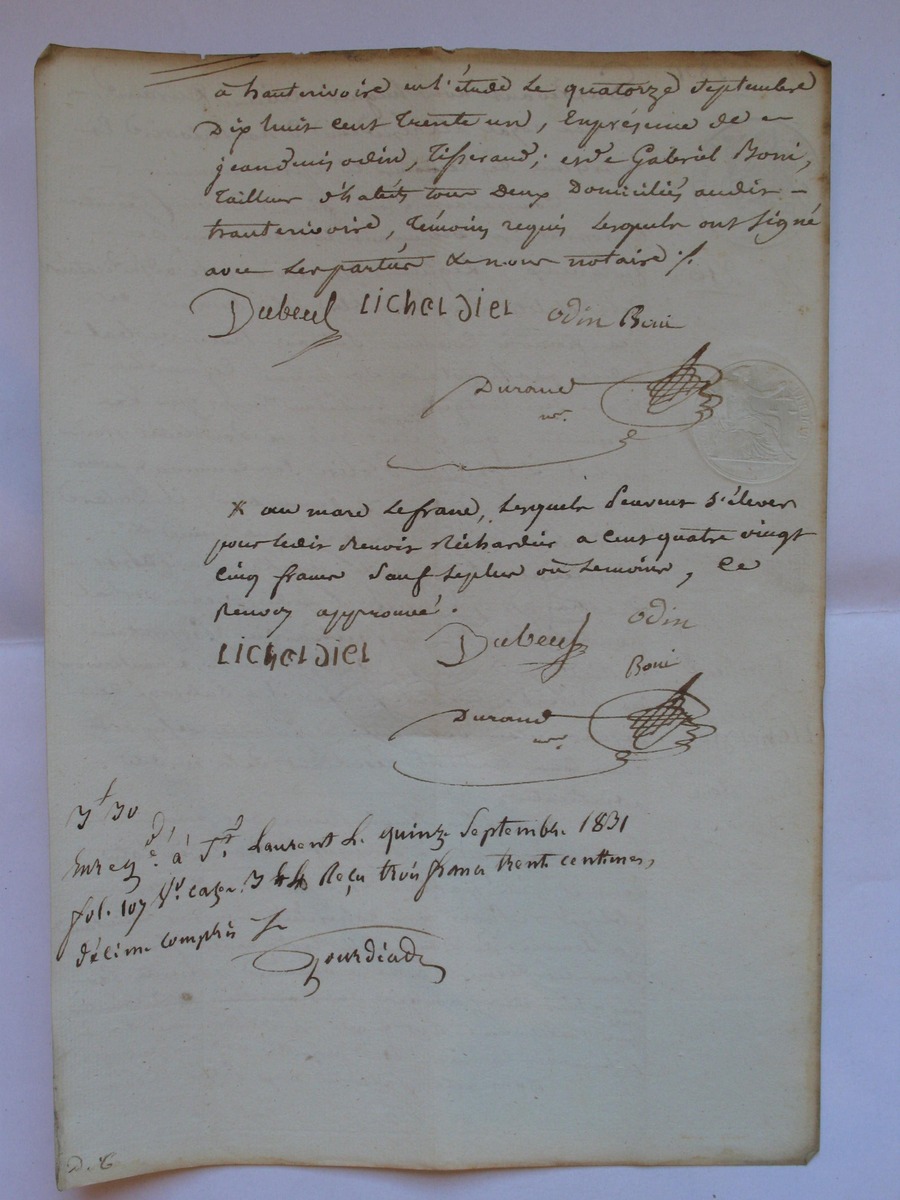 à hauterivoire en l'étude Le quatorze Septembre
Dix huit cent Trente un, En présence de
jean denis odin, Tisserand; et de Gabriel Boni,
Tailleur d'habits tous Deux Domiciliés audit
hauterivoire, Témoins requis Lesquels ont signé
avec Les parties & nous notaire ./.
Dubeuf Lichardier odin Boni
Durand
nre.
X au marc Lefranc, Lesquels Peuvent S'élever
pour ledit Benoit Richardier a Cent quatre vingt
Cinq francs Sauf Leplus ou Lemoins, Ce
Renvoy approuvé.
Lichardier Dubeuf odin
Boni
Durand
nre.
3f 30
Enreg. à St. Laurent Le quinze Septembre 1831
fol. 107 Vo. case. Reçu trois francs trente centimes,
décime compris
D. C